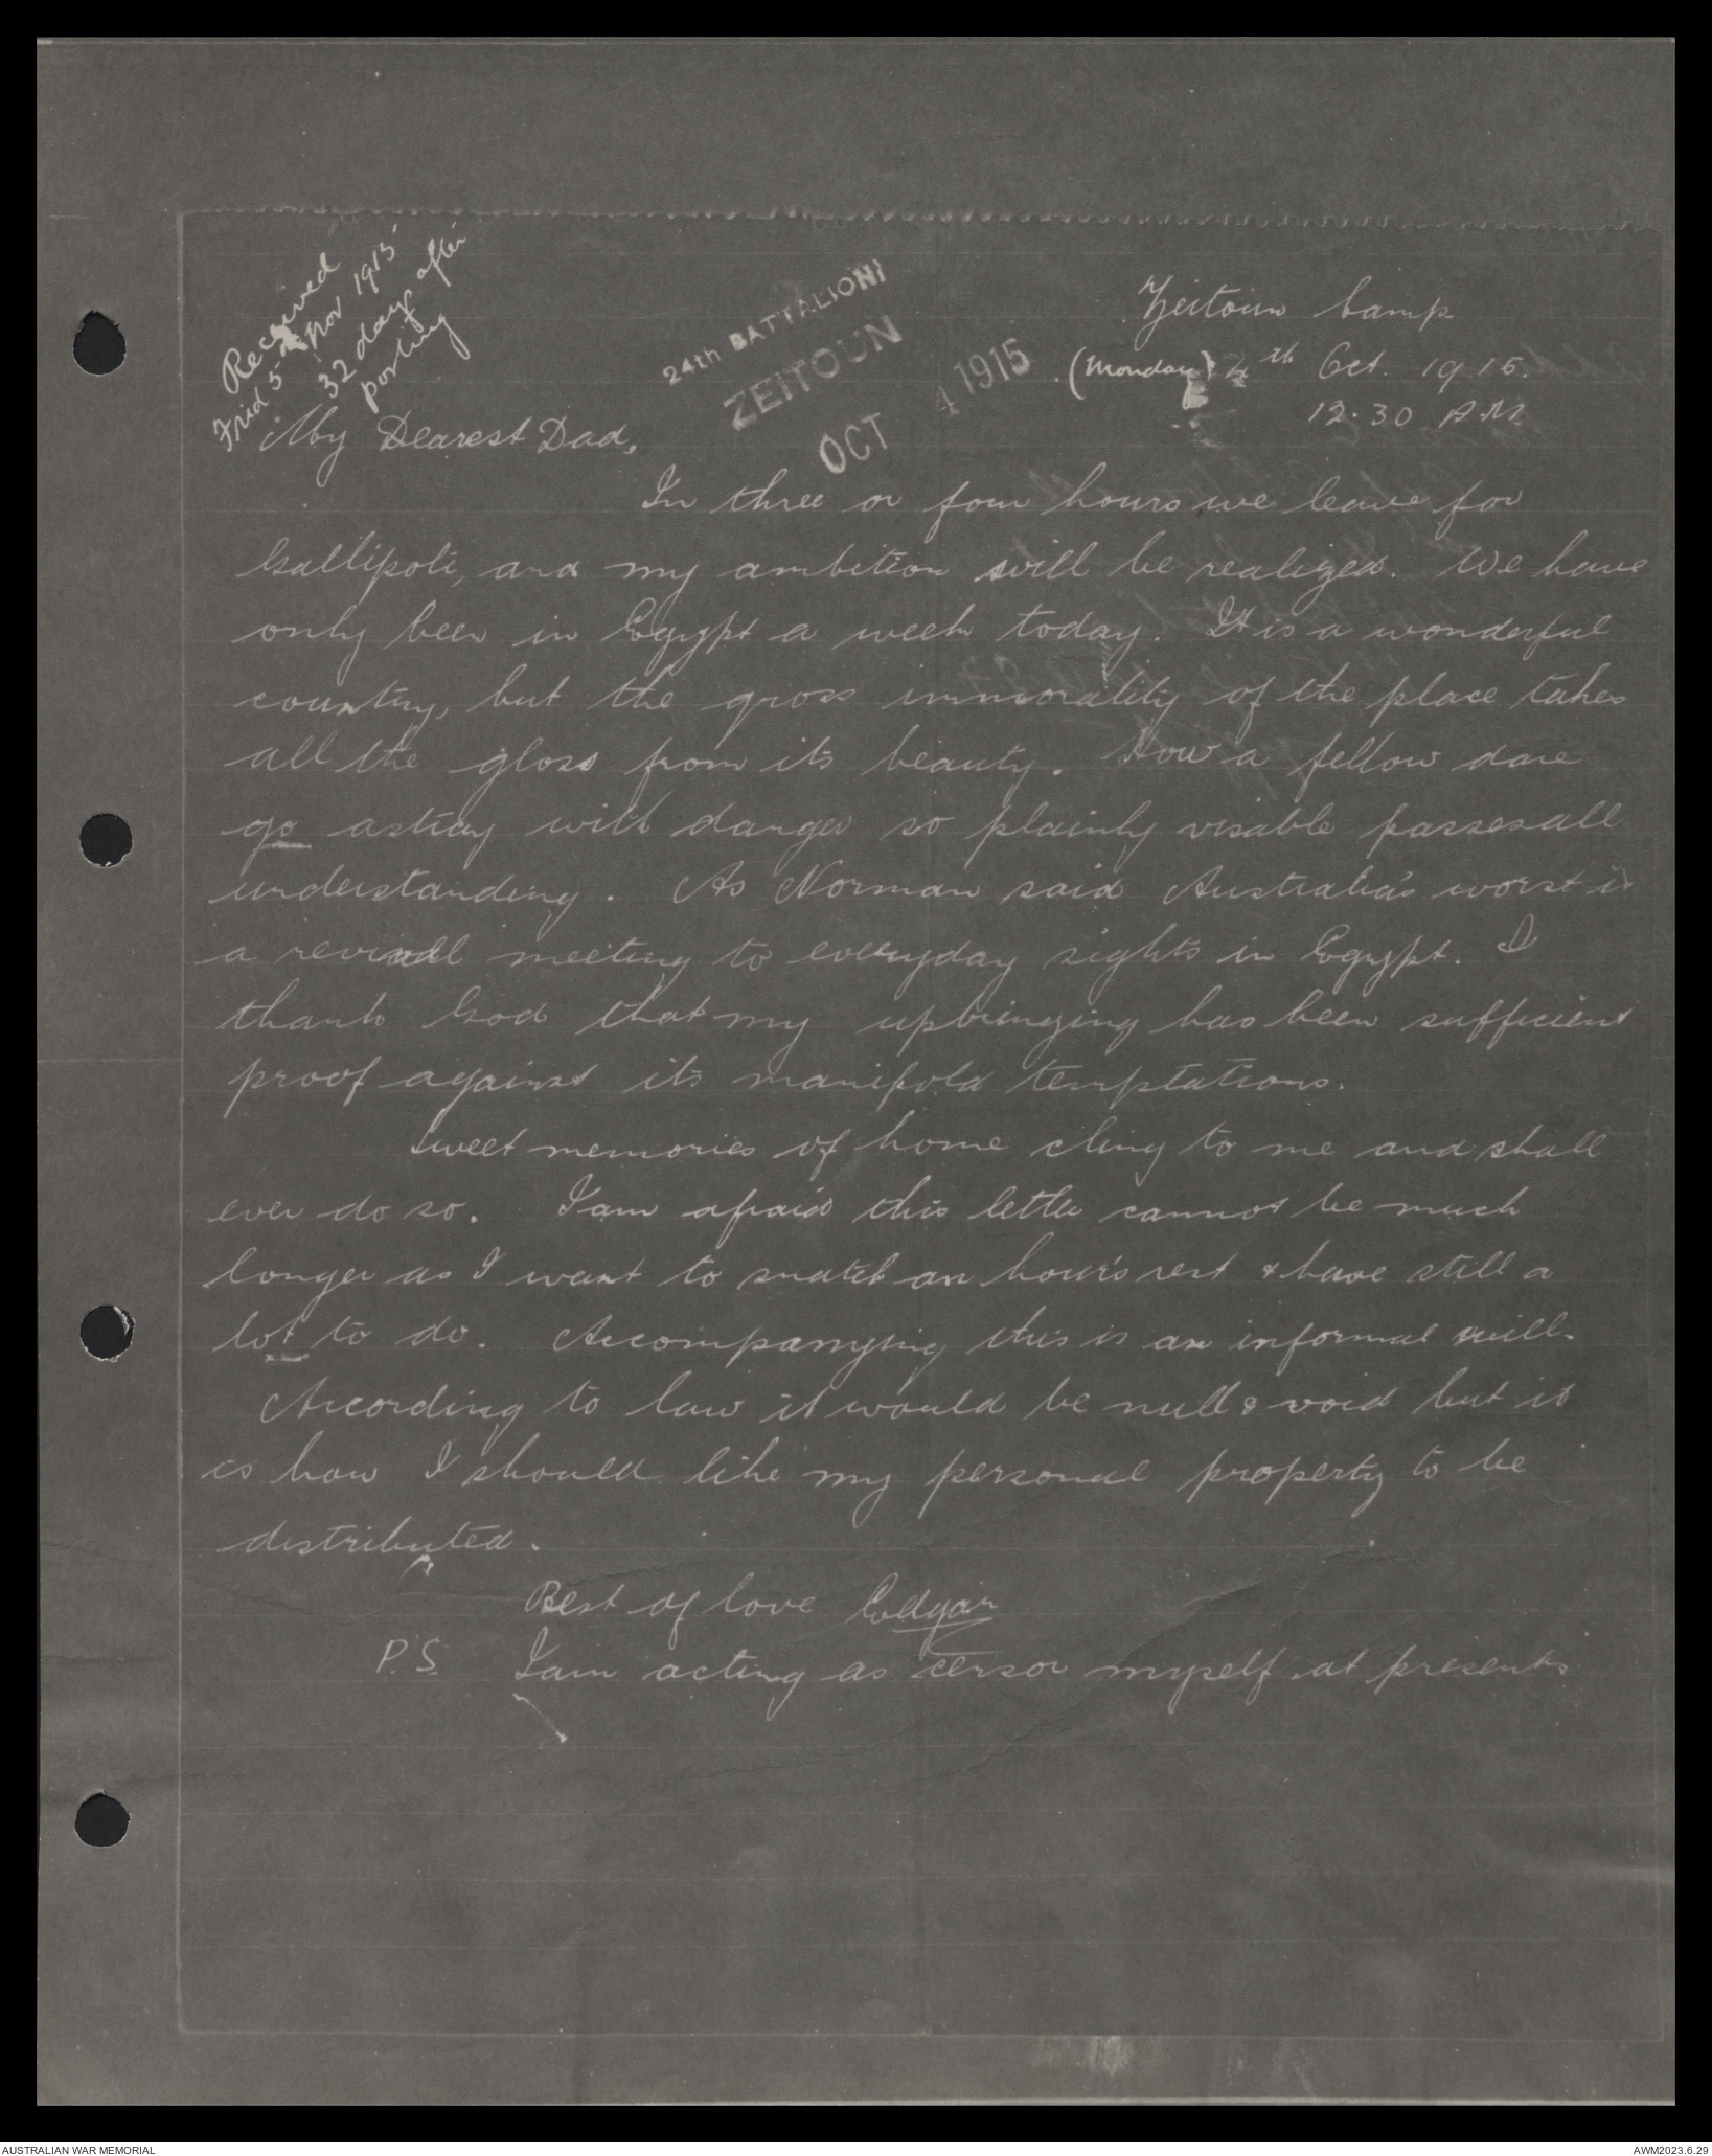 Received
Frid 5 Nov 1915
32 days after
posting
24th BATTALION
ZEITOUN
OCT 4 1915
Zeitoun Camp
(Monday) 4th Oct. 1915.
12.30 A.M.
My Dearest Dad,
In three or four hours we leave for
Gallipoli, and my ambition will be realized. We have
only been in Egypt a week today. It is a wonderful
country, but the gross immorality of the place takes
all the gloss from its beauty. How a fellow dare
go astray with danger so plainly visable passes all
understanding. As Norman said Australia's worst is
a revival meeting to everyday sights in Egypt. I
thank God that my upbringing has been sufficient
proof against its manifold temptations.
Sweet memories of home cling to me and shall
ever do so. I am afraid this letter cannot be much
longer as I want to snatch an hour's rest & have still a
lot to do. Accompanying this is an informal will.
According to law it would be null & void but it
is how I should like my personal property to be
distributed.
Best of love Edgar
P.S. I am acting as censor myself at present
AUSTRALIAN WAR MEMORIAL
AWM2023.6.29